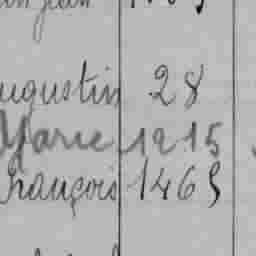 ugustin 28
Marie 1215
François 1465